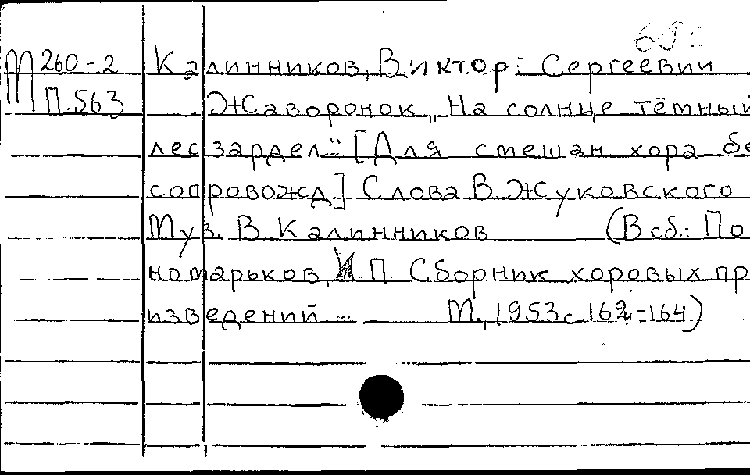 М 260-2 Калинников, Виктор Сергеевич
П.563 Жаворонок „На солнце тёмный
лес зардел..." [Для смешан хора бе
сопровожд.] Слова В. Жуковского
Муз. В. Калинников (В сб.: По
номарьков, И П Сборник хоровых пр
изведений М., 1953 с. 162-164.)